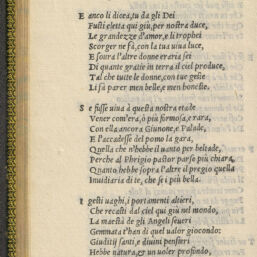 E anco li dicea, tu da gli Dei
Fusti eletta qui giù, per nostra duce,
Le grandezze d'amor, e li trophei
Scorger ne fà, con la tua viua luce,
E soura l'altre donne eraria sei
Di quante gratie in terra il ciel produce,
Tal che tutte le donne, con tue geste
Li fà parer men belle, e men honeste.
S e fusse viua à questa nostra etade
Vener com'era, ò più formosa, e rara,
Con ella ancora Giunone, e Palade,
E l'accadesse del pomo la gara,
Quella che n'hebbe il uanto per beltade,
Perche al Phrigio pastor parse più chiara,
Quanto hebbe sopra l'altre il pregio quella
Inuidiaria di te, che sei più bella.
I gesti uaghi, i portamenti altieri,
Che recasti dal ciel qui giù nel mondo,
La maestà de gli Angeli seueri
Gemmata t'han di quel ualor giocondo:
Giuditij santi, e diuini pensieri
Hebbe natura, & un uoler profondo,